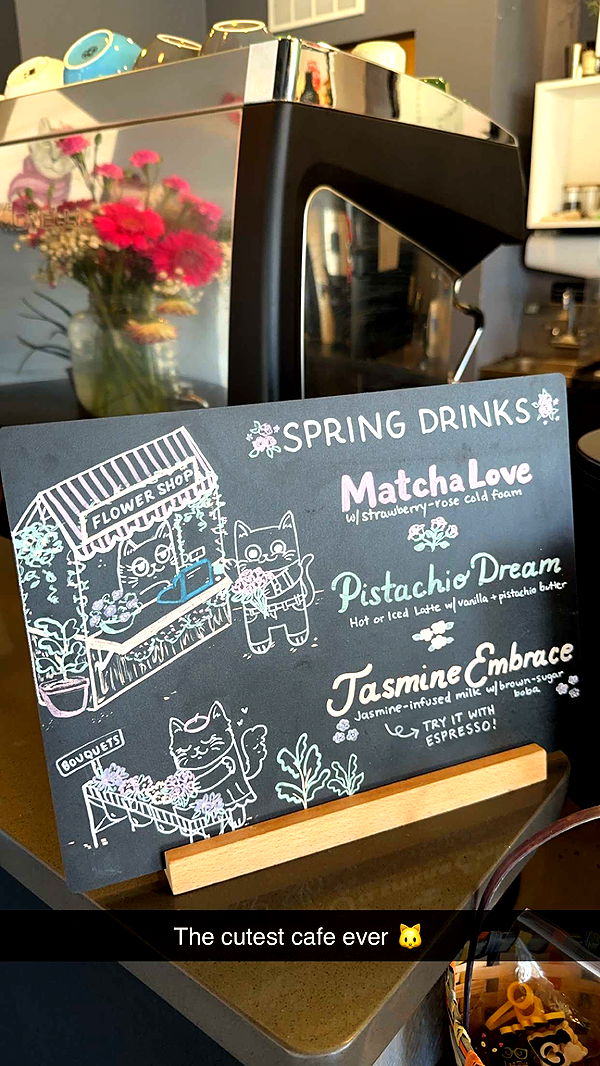 SPRING DRINKS
FLOWER SHOP
Matcha Love
w/ strawberry-rose cold foam
Pistachio Dream
Hot or Iced Latte w/ vanilla + pistachio butter
Jasmine Embrace
Jasmine-infused milk w/ brown-sugar
boba
TRY IT WITH
ESPRESSO!
BOUQUETS
The cutest cafe ever 🐱